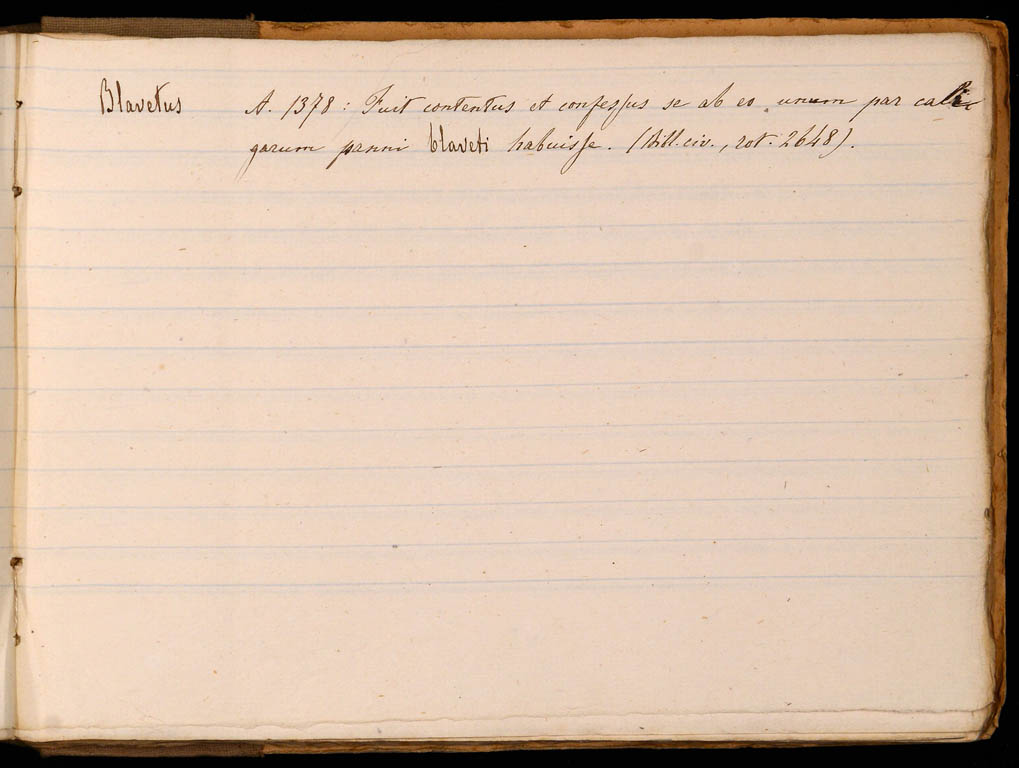 Blavetus A. 1378 : Fuit contentus et confessus se ab eo unum par calli
garum panni blaveti habuisse. (Bill. civ., rot. 2648).